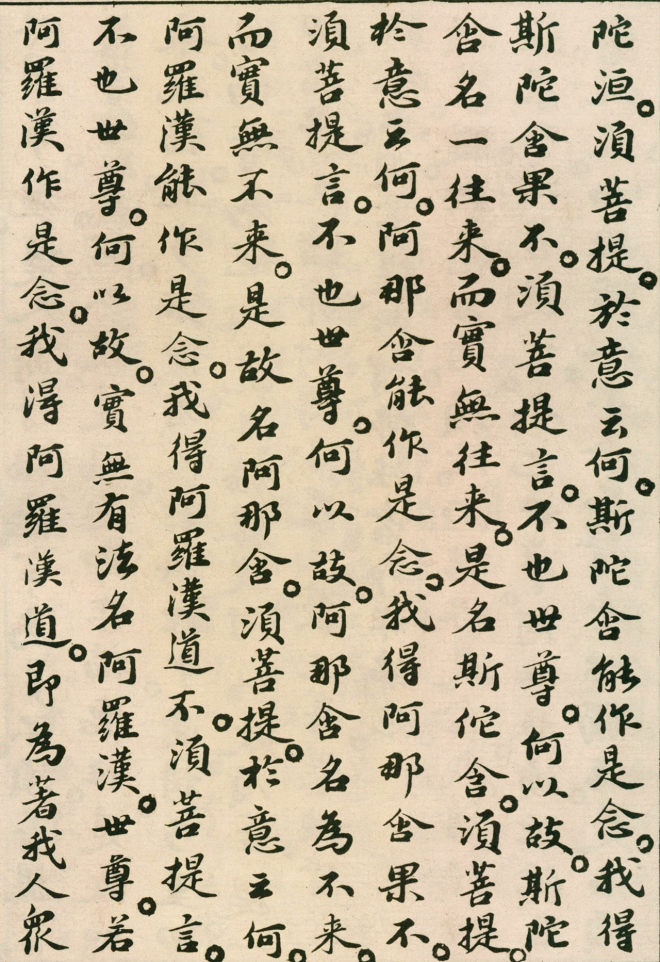 陀洹。須菩提。於意云何。斯陀含能作是念。我得
斯陀含果不。須菩提言。不也世尊。何以故。斯陀
含名一往来。而實無往来。是名斯佗含。須菩提。
於意云何。阿那含能作是念。我得阿那含果不。
須菩提言。不也世尊。何以故。阿那含名為不来。
而實無不来。是故名阿那含。須菩提。於意云何。
阿羅漢能作是念。我得阿羅漢道不。須菩提言。
不也世尊。何以故。實無有法名阿羅漢。世尊。若
阿羅漢作是念。我得阿羅漢道。即為著我人衆